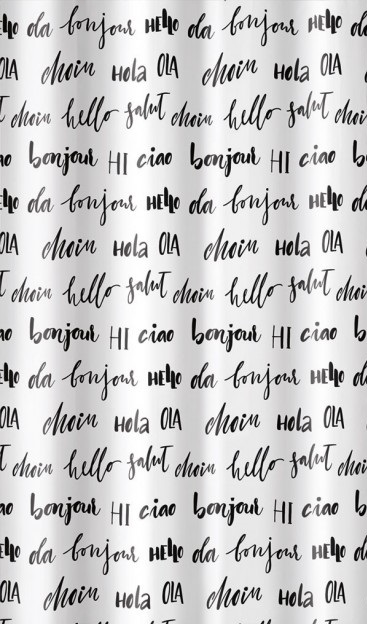 Hello ola bonjour Hello ola bonjour Hello ola
OLA choin Hola OLA choin Hola OLA
choin hello salut choin hello salut choin
ciao bonjour HI ciao bonjour HI ciao
Hello ola bonjour Hello ola bonjour Hello
OLA choin Hola OLA choin Hola OLA
choin hello salut choin hello salut choin
bonjour HI ciao bonjour HI ciao
Hello ola bonjour Hello ola bonjour Hello
OLA choin Hola OLA choin Hola OLA
choin hello salut choin hello salut choin
bonjour HI ciao bonjour HI ciao
Hello ola bonjour Hello ola bonjour Hello
OLA choin Hola OLA choin Hola OLA